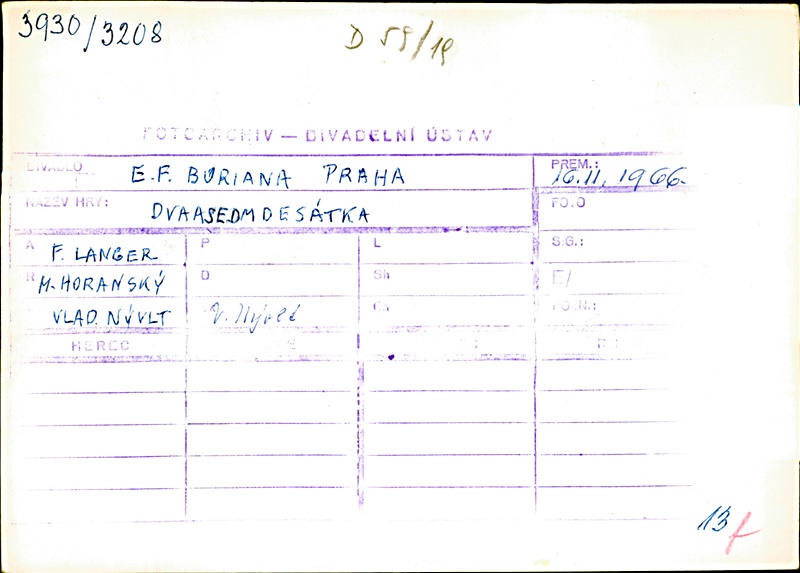 3930/3208
D 59/19
FOTOARCHIV — DIVADELNÍ ÚSTAV
DIVADLO E.F. BURIANA PRAHA PREM.: 16.11.1966
NÁZEV HRY: DVAASEDMDESÁTKA FO.O
A F. LANGER P L S.G.:
R M. HORANSKÝ D Sh E/
VLAD. NÝVLT V. Nývlt Ch FO.R.:
HEREC
13